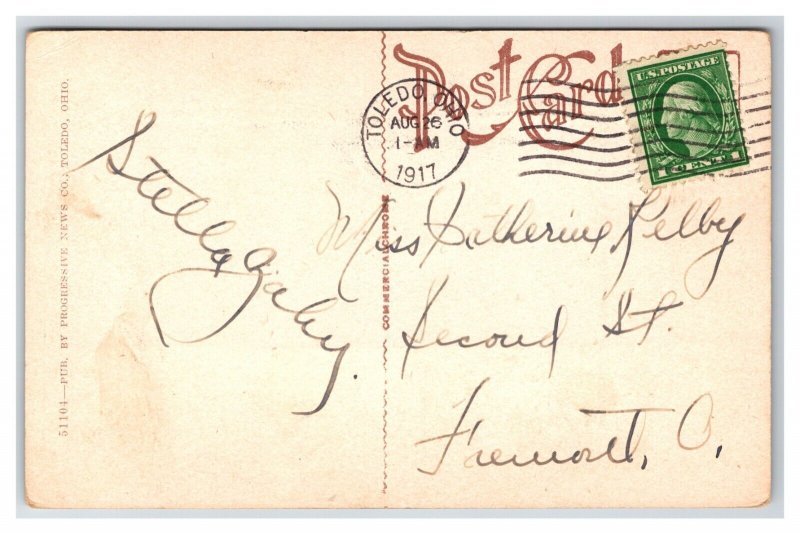 Post Card
U.S. POSTAGE
1 CENT 1
TOLEDO OHIO
AUG 26
1-AM
1917
COMMERCIALCHROME
51104—PUB. BY PROGRESSIVE NEWS CO., TOLEDO, OHIO.
Stella
Miss Katherine
Second St.
Fremont, O.